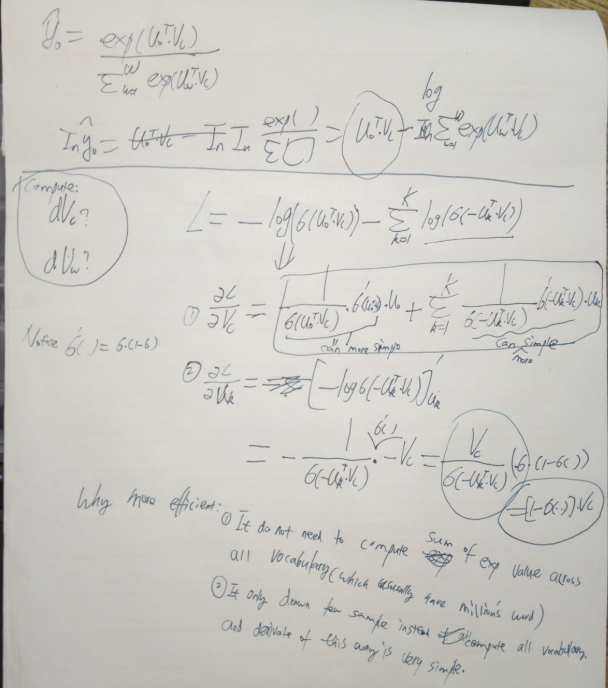 ŷ₀ = exp(u₀ᵀ·Vc) / Σ_{w=1}^{W} exp(u_wᵀ·Vc)
ln ŷ₀ = ln exp( ) / Σ□ = u₀ᵀ·Vc - log Σ_{w=1}^{W} exp(u_wᵀ·Vc)
Compute:
dVc?
dUw?
L = - log(6(u₀ᵀ·Vc)) - Σ_{k=1}^{K} log(6(-u_kᵀ·Vc))
⇓
① ∂L/∂Vc = 1/6(u₀ᵀ·Vc) · 6'(u₀ᵀVc)·u₀ + Σ_{k=1}^{K} 1/6(-u_kᵀ·Vc) 6'(-u_kᵀ·Vc)·u_k
can more simple
can simple more
Notice 6'( ) = 6·(1-6)
② ∂L/∂u_k = [-log6(-u_kᵀ·Vc)]'u_k
= - 1/6(-u_kᵀ·Vc) · 6'( ) · -Vc = Vc/6(-u_kᵀ·Vc) (6·(1-6( ))
=[1-6(·)]·Vc
Why more efficient:
① It do not need to compute sum of exp value across
all vocabulary (which usually have million's word)
② It only drawn few sample instead of compute all vocabulary.
and derivate of this way is very simple.